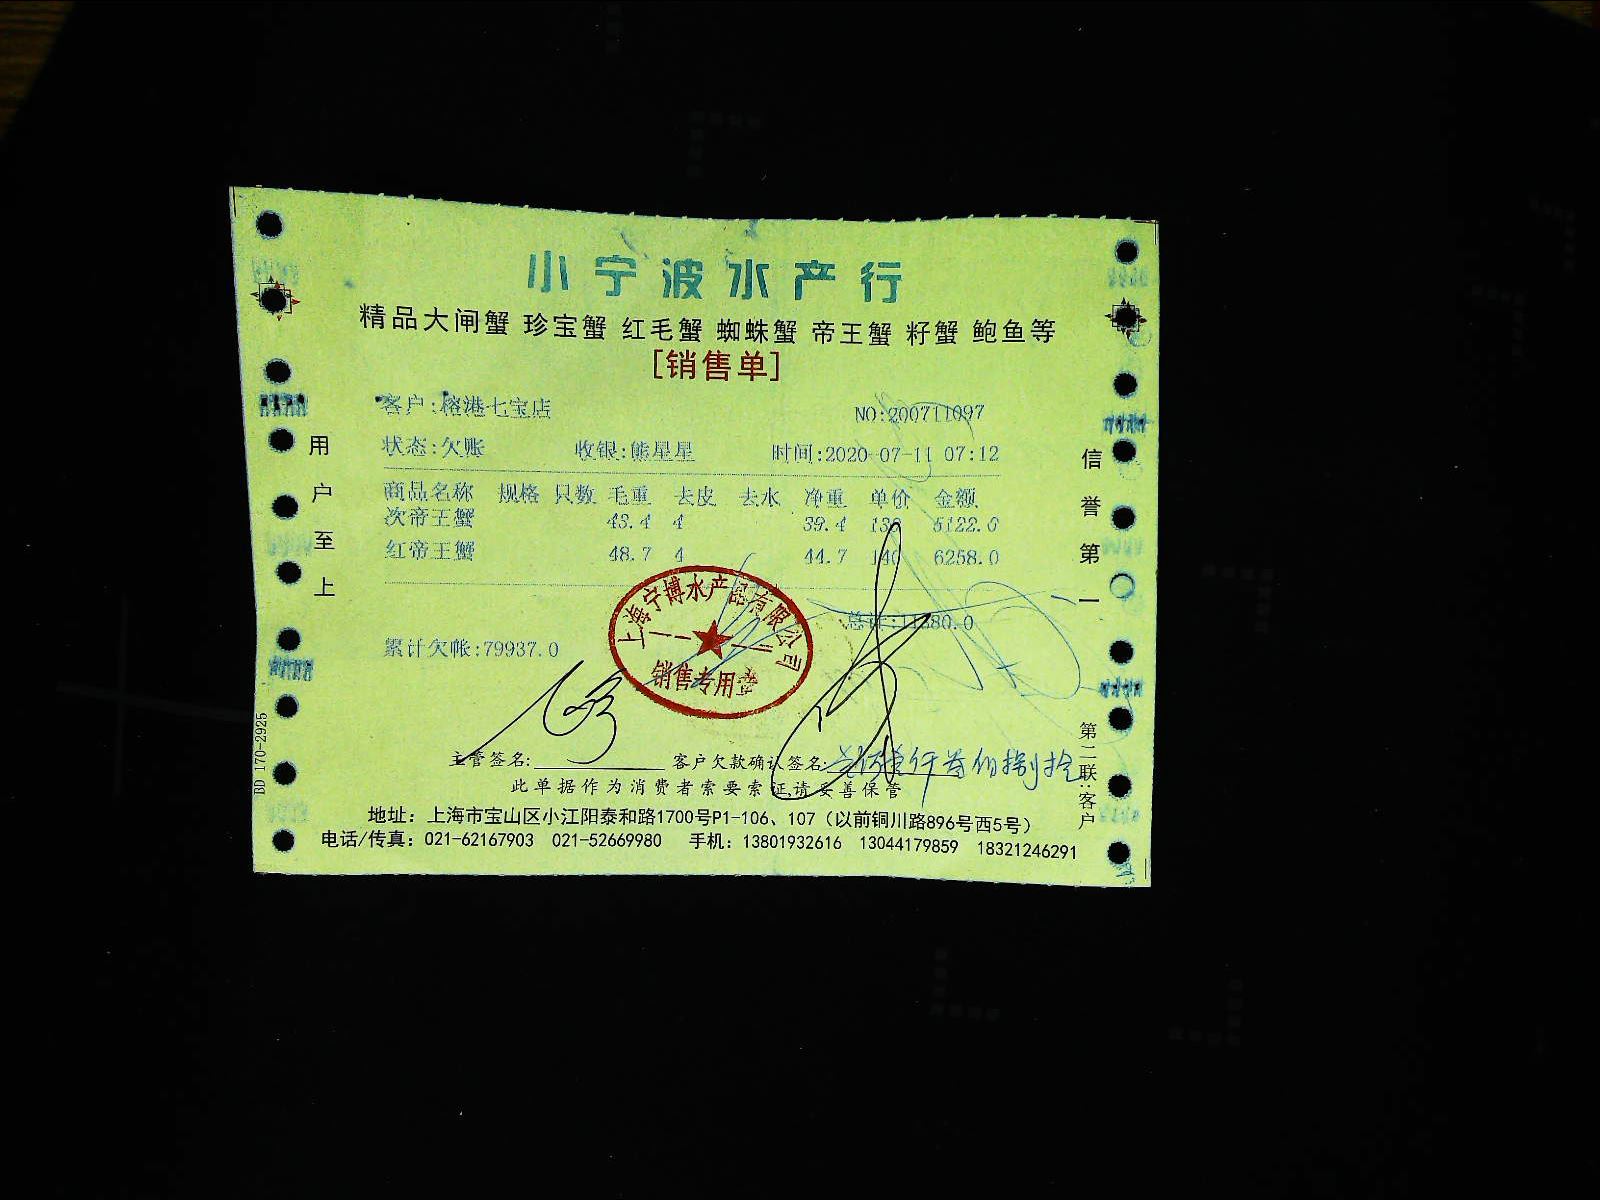 小宁波水产行
精品大闸蟹 珍宝蟹 红毛蟹 蜘蛛蟹 帝王蟹 籽蟹 鲍鱼等
[销售单]
客户:榕港七宝店 NO:200711097
状态:欠账 收银:熊星星 时间:2020-07-11 07:12
商品名称 规格 只数 毛重 去皮 去水 净重 单价 金额
次帝王蟹 43.4 4 39.4 130 5122.0
红帝王蟹 48.7 4 44.7 140 6258.0
总计:11380.0
累计欠帐:79937.0
上海宁搏水产品有限公司
销售专用章
主管签名: 客户欠款确认签名:
此单据作为消费者索要索证,请妥善保管
地址：上海市宝山区小江阳泰和路1700号P1-106、107（以前铜川路896号西5号）
电话/传真：021-62167903 021-52669980 手机：13801932616 13044179859 18321246291
用户至上
信誉第一
第二联:客户
BD 170-2925